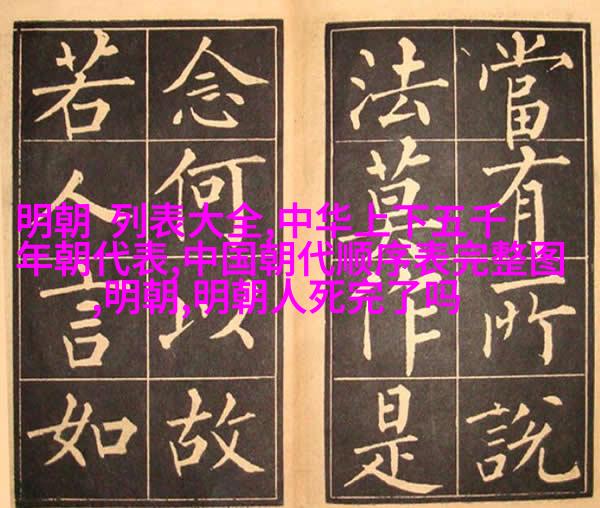 當有所說
法莫作是
念何以故
若人言如
明朝 列表大全,中华上下五千
年朝代表,中国朝代顺序表完整图
,明朝,明朝人死完了吗